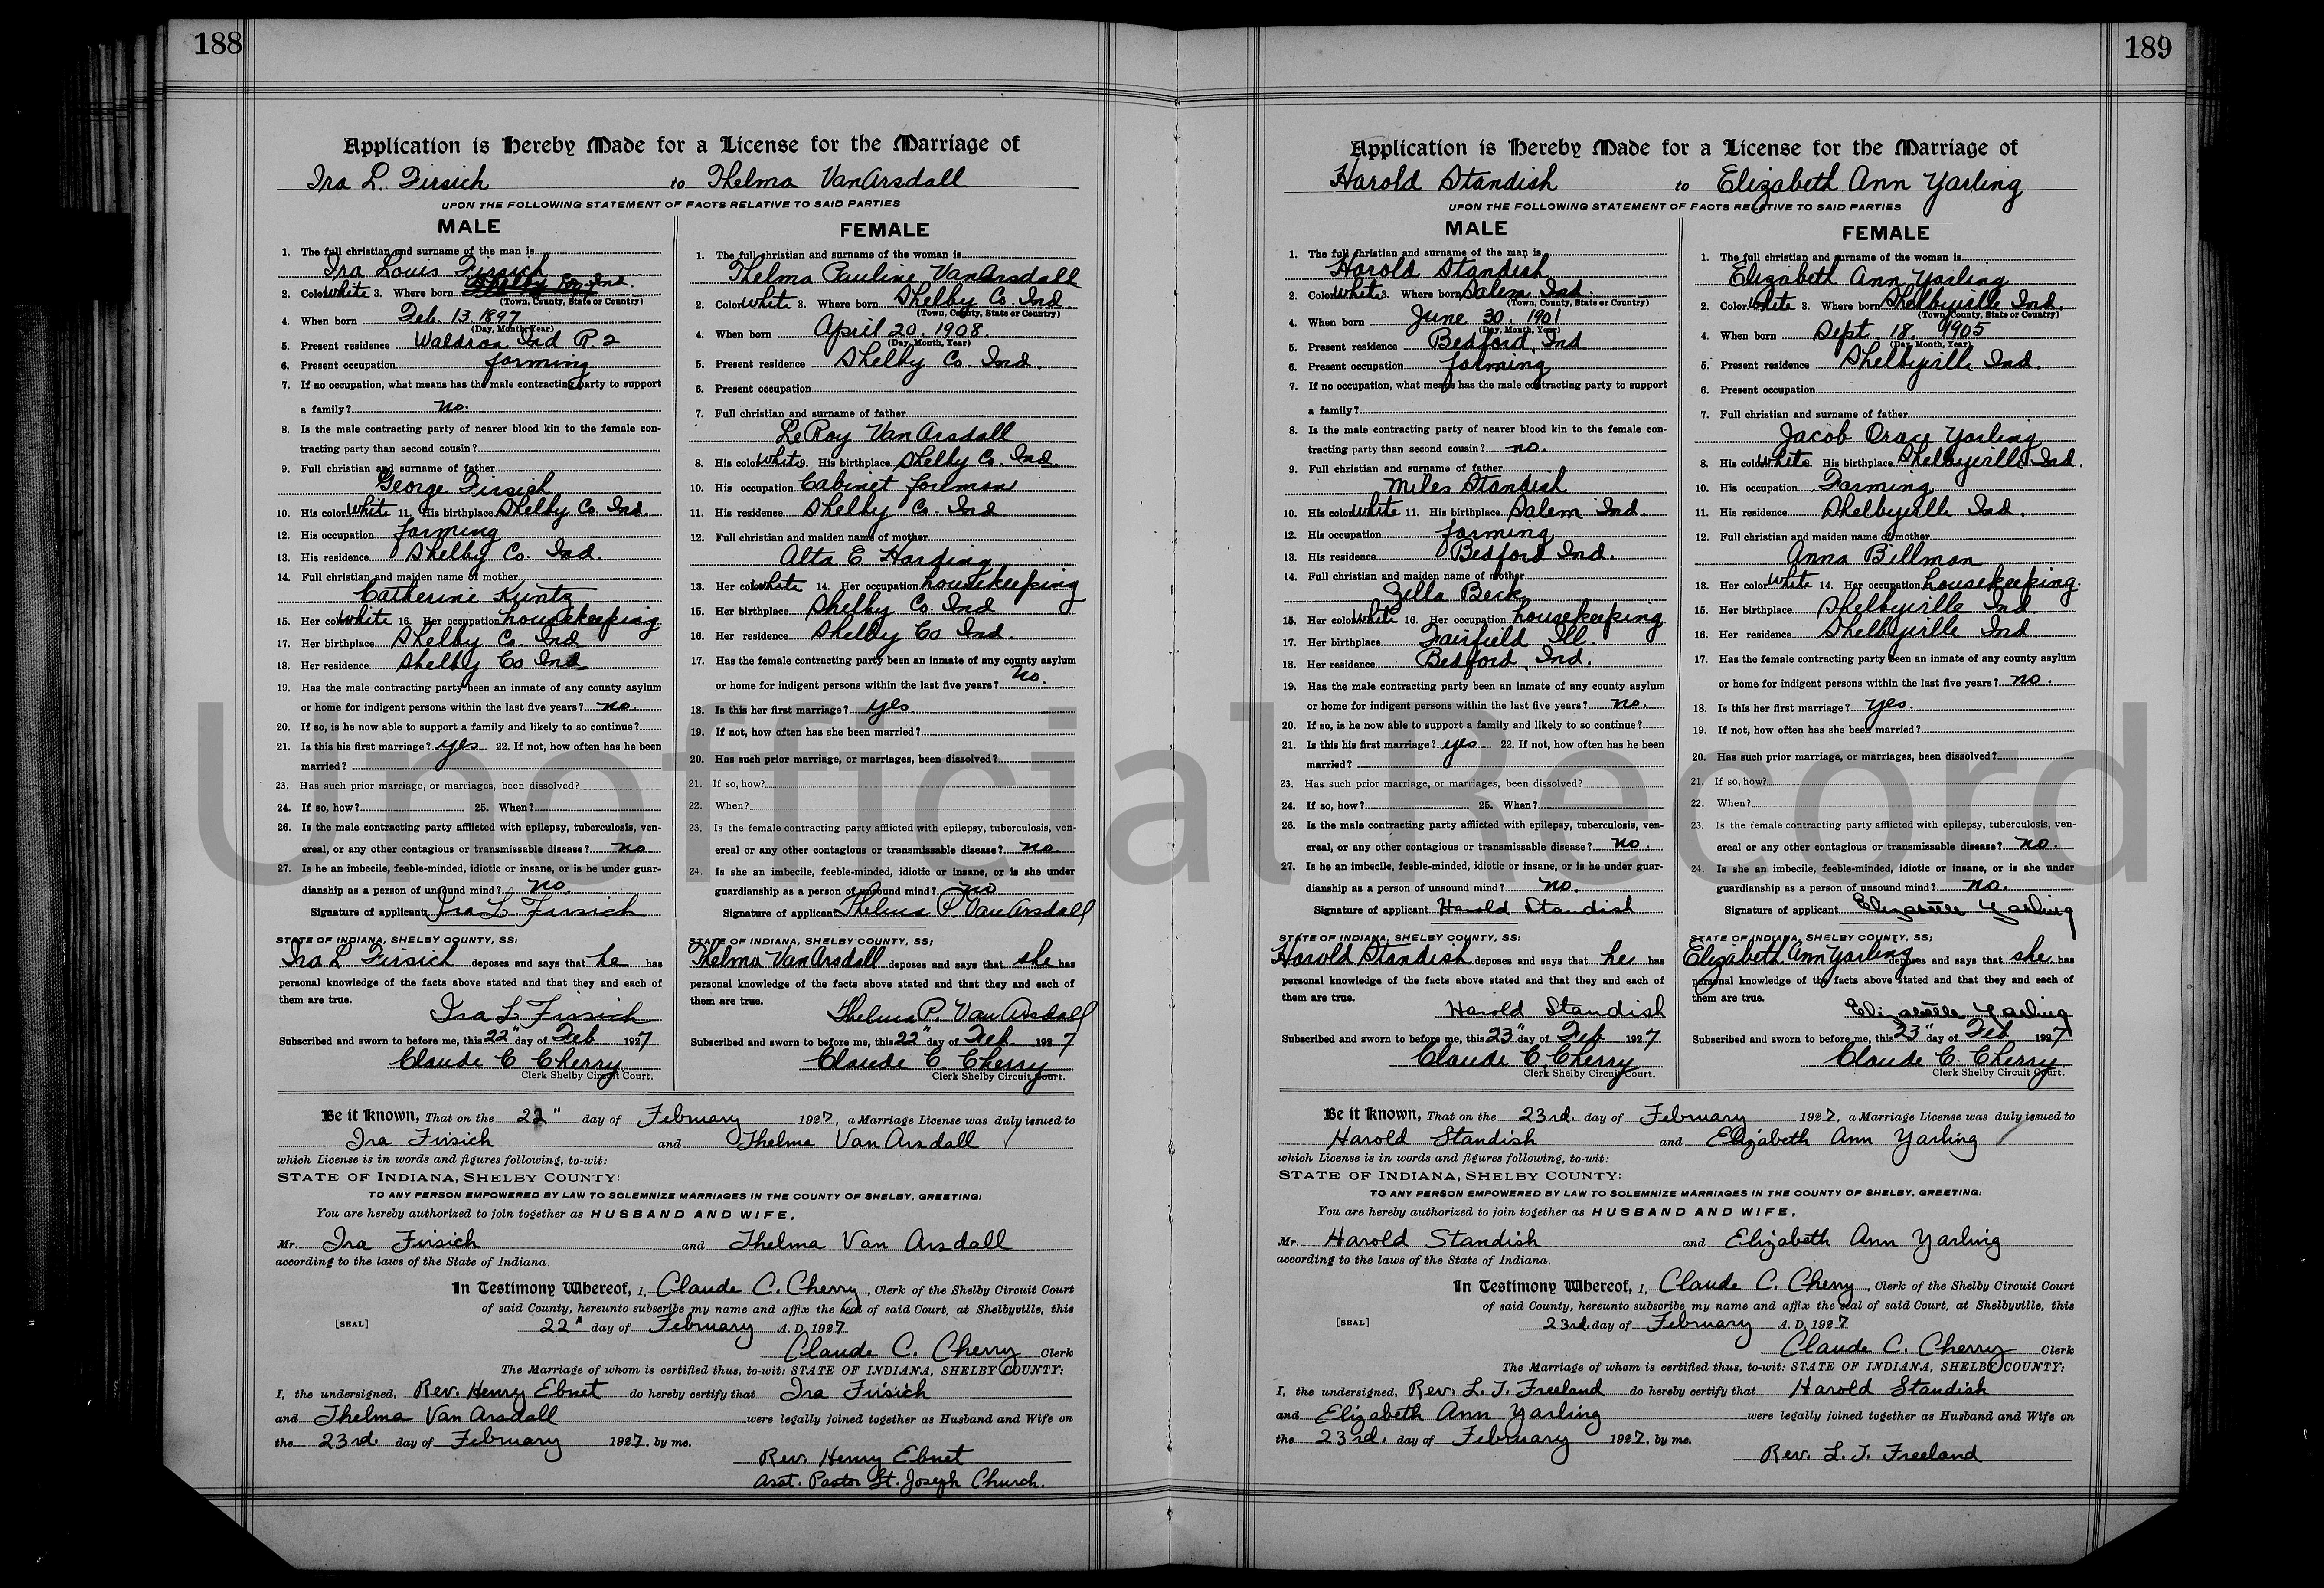 188
Application is Hereby Made for a License for the Marriage of
Ira L. Firsich to Thelma VanArsdall
UPON THE FOLLOWING STATEMENT OF FACTS RELATIVE TO SAID PARTIES
MALE
1. The full christian and surname of the man is
Ira Louis Firsich
2. Color White 3. Where born Shelby Co. Ind.
(Town, County, State or Country)
4. When born Feb. 13. 1897
(Day, Month, Year)
5. Present residence Waldron Ind R. 2
6. Present occupation farming
7. If no occupation, what means has the male contracting party to support
a family? no.
8. Is the male contracting party of nearer blood kin to the female con-
tracting party than second cousin?
9. Full christian and surname of father
George Firsich
10. His color White 11. His birthplace Shelby Co. Ind.
12. His occupation farming
13. His residence Shelby Co. Ind.
14. Full christian and maiden name of mother
Catherine Kuntz
15. Her color White 16. Her occupation housekeeping
17. Her birthplace Shelby Co. Ind
18. Her residence Shelby Co Ind
19. Has the male contracting party been an inmate of any county asylum
or home for indigent persons within the last five years? no.
20. If so, is he now able to support a family and likely to so continue?
21. Is this his first marriage? yes 22. If not, how often has he been
married?
23. Has such prior marriage, or marriages, been dissolved?
24. If so, how? 25. When?
26. Is the male contracting party afflicted with epilepsy, tuberculosis, ven-
ereal, or any other contagious or transmissable disease? no.
27. Is he an imbecile, feeble-minded, idiotic or insane, or is he under guar-
dianship as a person of unsound mind? no.
Signature of applicant Ira L. Firsich
STATE OF INDIANA, SHELBY COUNTY, SS:
Ira L Firsich deposes and says that he has
personal knowledge of the facts above stated and that they and each of
them are true.
Ira L. Firsich
Subscribed and sworn to before me, this 22" day of Feb 1927
Claude C. Cherry
Clerk Shelby Circuit Court.
FEMALE
1. The full christian and surname of the woman is
Thelma Pauline VanArsdall
2. Color White 3. Where born Shelby Co. Ind
(Town, County, State or Country)
4. When born April 20. 1908.
(Day, Month, Year)
5. Present residence Shelby Co. Ind.
6. Present occupation
7. Full christian and surname of father
LeRoy VanArsdall
8. His color White 9. His birthplace Shelby Co. Ind.
10. His occupation Cabinet foreman
11. His residence Shelby Co. Ind
12. Full christian and maiden name of mother
Alta E Harding
13. Her color white 14. Her occupation housekeeping
15. Her birthplace Shelby Co Ind
16. Her residence Shelby Co Ind.
17. Has the female contracting party been an inmate of any county asylum
or home for indigent persons within the last five years? no.
18. Is this her first marriage? yes
19. If not, how often has she been married?
20. Has such prior marriage, or marriages, been dissolved?
21. If so, how?
22. When?
23. Is the female contracting party afflicted with epilepsy, tuberculosis, ven-
ereal or any other contagious or transmissable disease? no.
24. Is she an imbecile, feeble-minded, idiotic or insane, or is she under
guardianship as a person of unsound mind? no
Signature of applicant Thelma P. VanArsdall
STATE OF INDIANA, SHELBY COUNTY, SS;
Thelma VanArsdall deposes and says that she has
personal knowledge of the facts above stated and that they and each of
them are true.
Thelma P. VanArsdall
Subscribed and sworn to before me, this 22" day of Feb. 1927
Claude C. Cherry
Clerk Shelby Circuit Court.
Be it Known, That on the 22" day of February 1927, a Marriage License was duly issued to
Ira Firsich and Thelma Van Arsdall
which License is in words and figures following, to-wit:
STATE OF INDIANA, SHELBY COUNTY:
TO ANY PERSON EMPOWERED BY LAW TO SOLEMNIZE MARRIAGES IN THE COUNTY OF SHELBY, GREETING:
You are hereby authorized to join together as HUSBAND AND WIFE,
Mr. Ira Firsich and Thelma Van Arsdall
according to the laws of the State of Indiana.
In Testimony Whereof, I, Claude C. Cherry, Clerk of the Shelby Circuit Court
of said County, hereunto subscribe my name and affix the seal of said Court, at Shelbyville, this
[SEAL] 22" day of February A. D. 1927
Claude C. Cherry Clerk
The Marriage of whom is certified thus, to-wit: STATE OF INDIANA, SHELBY COUNTY:
I, the undersigned, Rev. Henry Ebnet do hereby certify that Ira Firsich
and Thelma Van Arsdall were legally joined together as Husband and Wife on
the 23rd. day of February 1927, by me.
Rev. Henry Ebnet
Asst. Pastor St. Joseph Church.
189
Application is Hereby Made for a License for the Marriage of
Harold Standish to Elizabeth Ann Yarling
UPON THE FOLLOWING STATEMENT OF FACTS RELATIVE TO SAID PARTIES
MALE
1. The full christian and surname of the man is
Harold Standish
2. Color White 3. Where born Salem Ind.
(Town, County, State or Country)
4. When born June 30. 1901
(Day, Month, Year)
5. Present residence Bedford, Ind.
6. Present occupation farming
7. If no occupation, what means has the male contracting party to support
a family?
8. Is the male contracting party of nearer blood kin to the female con-
tracting party than second cousin? no.
9. Full christian and surname of father
Miles Standish
10. His color White 11. His birthplace Salem Ind.
12. His occupation farming
13. His residence Bedford Ind.
14. Full christian and maiden name of mother
Zella Beck
15. Her color White 16. Her occupation housekeeping
17. Her birthplace Fairfield Ill.
18. Her residence Bedford, Ind.
19. Has the male contracting party been an inmate of any county asylum
or home for indigent persons within the last five years? no.
20. If so, is he now able to support a family and likely to so continue?
21. Is this his first marriage? yes 22. If not, how often has he been
married?
23. Has such prior marriage, or marriages, been dissolved?
24. If so, how? 25. When?
26. Is the male contracting party afflicted with epilepsy, tuberculosis, ven-
ereal, or any other contagious or transmissable disease? no.
27. Is he an imbecile, feeble-minded, idiotic or insane, or is he under guar-
dianship as a person of unsound mind? no.
Signature of applicant Harold Standish
STATE OF INDIANA, SHELBY COUNTY, SS:
Harold Standish deposes and says that he has
personal knowledge of the facts above stated and that they and each of
them are true.
Harold Standish
Subscribed and sworn to before me, this 23" day of Feb 1927
Claude C. Cherry
Clerk Shelby Circuit Court.
FEMALE
1. The full christian and surname of the woman is
Elizabeth Ann Yarling
2. Color White 3. Where born Shelbyville Ind.
(Town, County, State or Country)
4. When born Sept. 18, 1905
(Day, Month, Year)
5. Present residence Shelbyville Ind.
6. Present occupation
7. Full christian and surname of father
Jacob Yarling
8. His color White. His birthplace Shelbyville Ind.
10. His occupation Farming
11. His residence Shelbyville Ind.
12. Full christian and maiden name of mother
Anna Billman
13. Her color White 14. Her occupation housekeeping.
15. Her birthplace Shelbyville Ind
16. Her residence Shelbyville Ind
17. Has the female contracting party been an inmate of any county asylum
or home for indigent persons within the last five years? no.
18. Is this her first marriage? yes.
19. If not, how often has she been married?
20. Has such prior marriage, or marriages, been dissolved?
21. If so, how?
22. When?
23. Is the female contracting party afflicted with epilepsy, tuberculosis, ven-
ereal or any other contagious or transmissable disease? no.
24. Is she an imbecile, feeble-minded, idiotic or insane, or is she under
guardianship as a person of unsound mind? no.
Signature of applicant Elizabeth Yarling
STATE OF INDIANA, SHELBY COUNTY, SS;
Elizabeth Ann Yarling deposes and says that she has
personal knowledge of the facts above stated and that they and each of
them are true.
Elizabeth Yarling
Subscribed and sworn to before me, this 23" day of Feb 1927
Claude C. Cherry
Clerk Shelby Circuit Court.
Be it Known, That on the 23rd. day of February 1927, a Marriage License was duly issued to
Harold Standish and Elizabeth Ann Yarling
which License is in words and figures following, to-wit:
STATE OF INDIANA, SHELBY COUNTY:
TO ANY PERSON EMPOWERED BY LAW TO SOLEMNIZE MARRIAGES IN THE COUNTY OF SHELBY, GREETING:
You are hereby authorized to join together as HUSBAND AND WIFE,
Mr. Harold Standish and Elizabeth Ann Yarling
according to the laws of the State of Indiana.
In Testimony Whereof, I, Claude C. Cherry, Clerk of the Shelby Circuit Court
of said County, hereunto subscribe my name and affix the seal of said Court, at Shelbyville, this
[SEAL] 23rd. day of February A. D. 1927
Claude C. Cherry Clerk
The Marriage of whom is certified thus, to-wit: STATE OF INDIANA, SHELBY COUNTY:
I, the undersigned, Rev. L. T. Freeland do hereby certify that Harold Standish
and Elizabeth Ann Yarling were legally joined together as Husband and Wife on
the 23rd. day of February 1927, by me.
Rev. L. T. Freeland
Unofficial Record